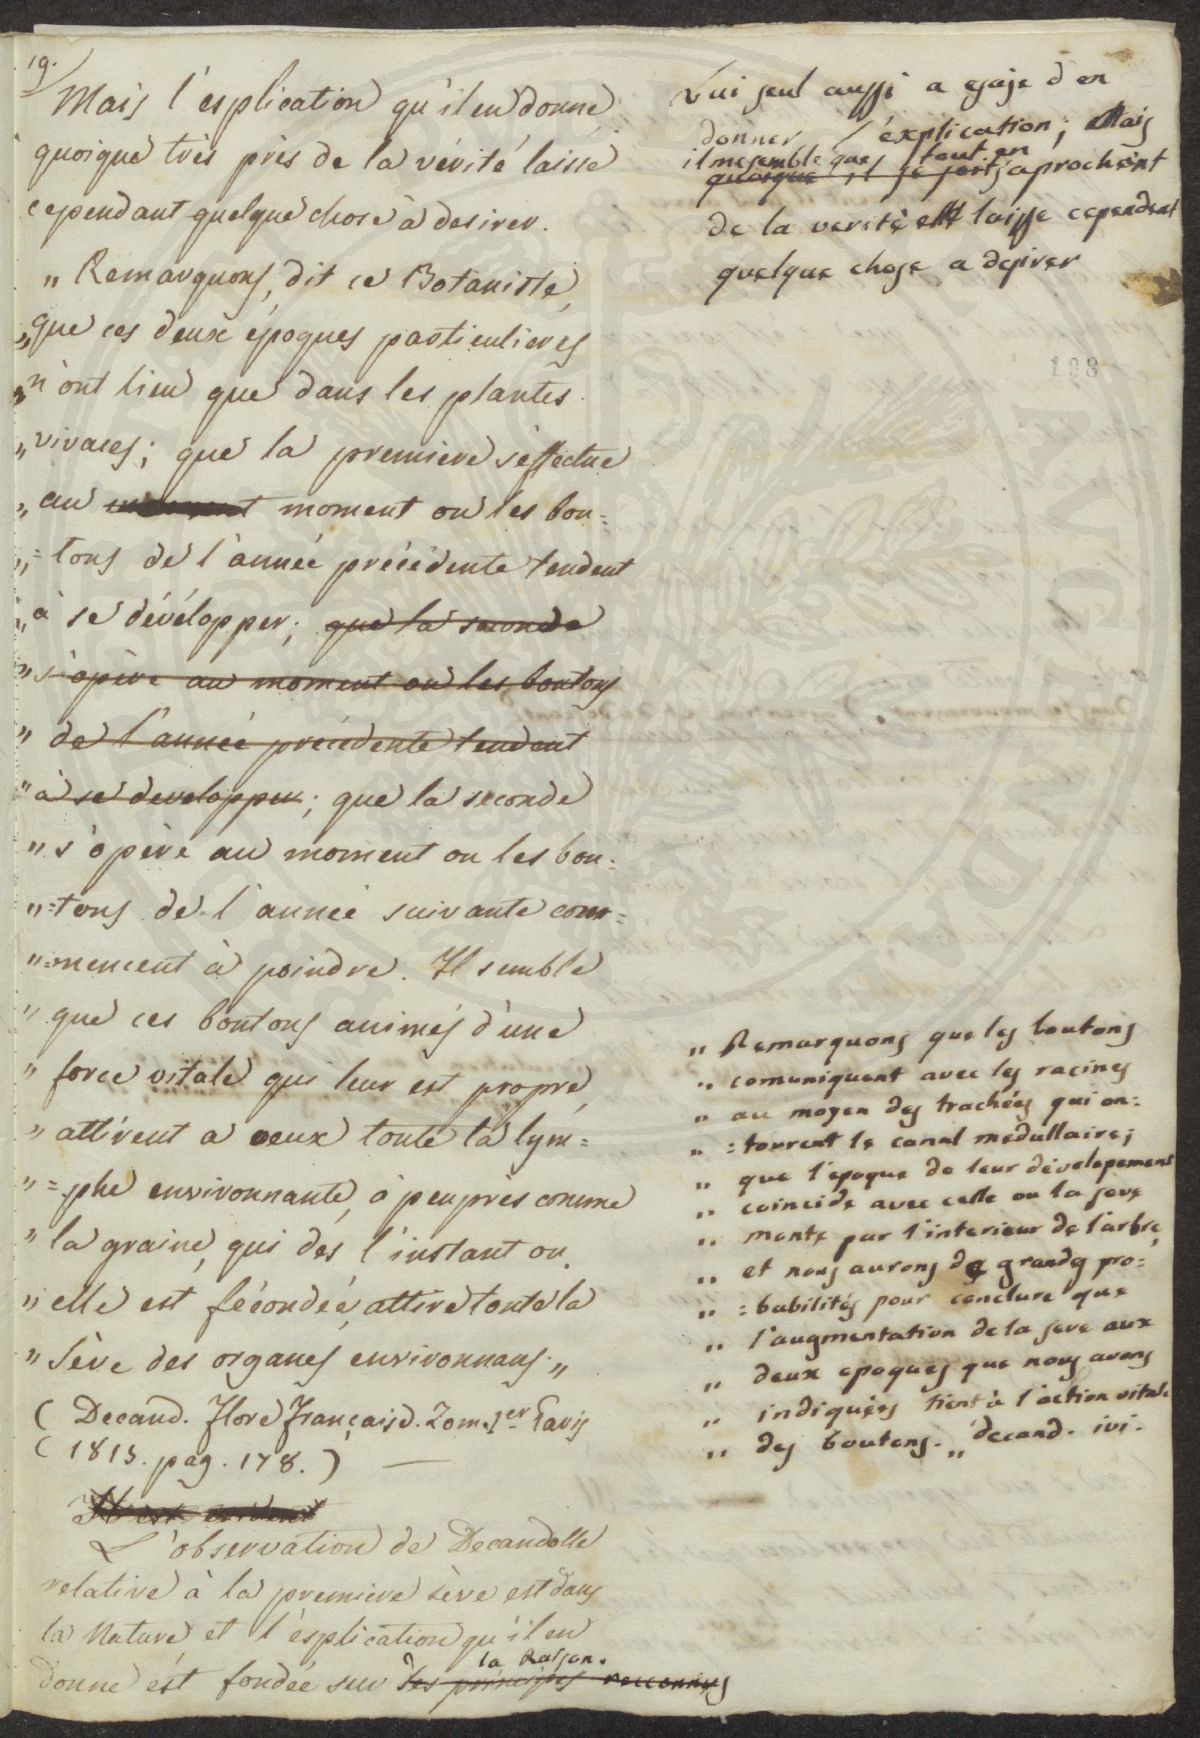 19.
Mais l'esplication qu'il en donne
quoique très près de la vérité laisse
cependant quelque chose à desirer.
„ Remarquons, dit ce Botaniste,
„ que ces deux époques particulieres
„ n'ont lieu que dans les plantes
„ vivaces; que la premiere s'effectue
„ au moment ou les bou=
„ =tons de l'année précédente tendent
„ à se dévélopper; que la seconde
„ s'opère au moment ou les boutons
„ de l'année précédente tendent
„ à se developper; que la seconde
„ s'opère au moment ou les bou=
„ =tons de l'année suivante com=
„ =mencent à poindre. Il semble
„ que ces boutons animés d'une
„ force vitale qui leur est propre,
„ attirent a ceux toute la lym=
„ =phe environnante, à peu près comme
„ la graine, qui dès l'instant ou
„ elle est fécondée, attire toute la
„ sève des organes environnans „
( Decand. Flore Française. Tom. 1er Paris
( 1815. pag. 178. ) —
Il est evident
L'observation de Decandolle
relative à la premiere sève est dans
la Nature et l'esplication qu'il en
la Raison.
donne est fondée sur des principes reconnus
Lui seul aussi a d en
donner l'explication; Mais
il me semble que tout en
quoique il se soit s'aprochent
de la verité laisse cependent
quelque chose a desirer
108
„ Remarquons que les boutons
„ comuniquent avec les racines
„ au moyen des trachées qui en=
„ =tourent le canal medullaire;
„ que l'epoque de leur dévelopement
„ coincide avec celle ou la seve
„ monte par l'interieur de l'arbre,
„ et nous aurons de grandes pro=
„ =babilités pour conclure que
„ l'augmentation de la seve aux
„ deux epoques que nous avons
„ indiquées tient à l'action vitale
„ des boutons. „ decand. ivi.